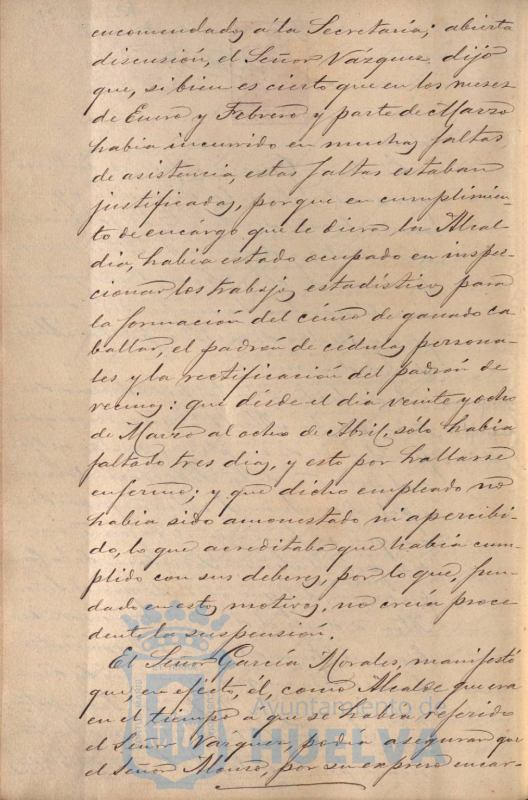 encomendados á la Secretaría; abierta
discusión, el Señor Vázquez dijo
que, si bien es cierto que en los meses
de Enero y Febrero y parte de Marzo
habia incurrido en muchas faltas
de asistencia, estas faltas estaban
justificadas, porque en cumplimien-
to de encargo que le diera la Alcal-
dia, habia estado ocupado en inspec-
cionar los trabajos estadísticos para
la formación del censo de ganado ca-
ballar, el padrón de cédulas persona-
les y la rectificación del padrón de
vecinos: que desde el dia veinte y ocho
de Marzo al ocho de Abril, sólo habia
faltado tres dias, y esto por hallarse
enfermo; y que dicho empleado no
habia sido amonestado ni apercibi-
do, lo que acreditaba que habia cum-
plido con sus deberes, por lo que, fun-
dado en estos motivos, no creia proce-
dente la suspensión.
El Señor García Morales, manifestó
que, en efecto, él, como Alcalde que era
en el tiempo a que se habia referido
el Señor Vazquez, podia asegurar que
el Señor Alonso, por su expreso encar-
Ayuntamiento de
HUELVA